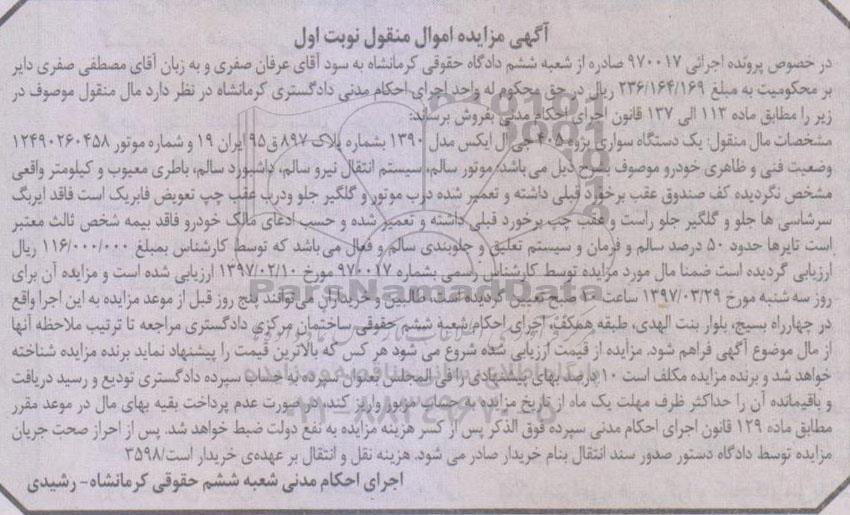 آگهی مزایده اموال منقول نوبت اول
در خصوص پرونده اجرائی ۹۷۰۰۱۷ صادره از شعبه ششم دادگاه حقوقی کرمانشاه به سود آقای عرفان صفری و به زیان آقای مصطفی صفری دایر
بر محکومیت به مبلغ ۲۳۶/۱۶۴/۱۶۹ ریال در حق محکوم له واحد اجرای احکام مدنی دادگستری کرمانشاه در نظر دارد مال منقول موصوف در
زیر را مطابق ماده ۱۱۳ الی ۱۳۷ قانون اجرای احکام مدنی بفروش برساند:
مشخصات مال منقول: یک دستگاه سواری پژوه ۴۰۵ جی ال ایکس مدل ۱۳۹۰ بشماره پلاک ۸۹۷ ق ۹۵ ایران ۱۹ و شماره موتور ۱۲۴۹۰۲۶۰۴۵۸
وضعیت فنی و ظاهری خودرو موصوف بشرح ذیل می باشد: موتور سالم، سیستم انتقال نیرو سالم، داشبورد سالم، باطری معیوب و کیلومتر واقعی
مشخص نگردیده کف صندوق عقب برخورد قبلی داشته و تعمیر شده درب موتور و گلگیر جلو ودرب عقب چپ تعویض فابریک است فاقد ایربگ
سرشاسی ها جلو و گلگیر جلو راست و عقب چپ برخورد قبلی داشته و تعمیر شده و حسب ادعای مالک خودرو فاقد بیمه شخص ثالث معتبر
است تایرها حدود ۵۰ درصد سالم و فرمان و سیستم تعلیق و جلوبندی سالم و فعال می باشد که توسط کارشناس بمبلغ ۱۱۶/۰۰۰/۰۰۰ ریال
ارزیابی گردیده است ضمنا مال مورد مزایده توسط کارشناس رسمی بشماره ۹۷۰۰۱۷ مورخ ۱۳۹۷/۰۲/۱۰ ارزیابی شده است و مزایده آن برای
روز سه شنبه مورخ ۱۳۹۷/۰۳/۲۹ ساعت ۱۰ صبح تعیین گردیده است، طالبین و خریداران می توانند پنج روز قبل از موعد مزایده به این اجرا واقع
در چهارراه بسیج، بلوار بنت الهدی، طبقه همکف، اجرای احکام شعبه ششم حقوقی ساختمان مرکزی دادگستری مراجعه تا ترتیب ملاحظه آنها
از مال موضوع آگهی فراهم شود. مزایده از قیمت ارزیابی شده شروع می شود هر کس که بالاترین قیمت را پیشنهاد نماید برنده مزایده شناخته
خواهد شد و برنده مزایده مکلف است ۱۰ درصد بهای پیشنهادی را فی المجلس بعنوان سپرده به حساب سپرده دادگستری تودیع و رسید دریافت
و باقیمانده آن را حداکثر ظرف مهلت یک ماه از تاریخ مزایده به حساب مزبور واریز کند، در صورت عدم پرداخت بقیه بهای مال در موعد مقرر
مطابق ماده ۱۲۹ قانون اجرای احکام مدنی سپرده فوق الذکر پس از کسر هزینه مزایده به نفع دولت ضبط خواهد شد. پس از احراز صحت جریان
مزایده توسط دادگاه دستور صدور سند انتقال بنام خریدار صادر می شود. هزینه نقل و انتقال بر عهده‌ی خریدار است/۳۵۹۸
اجرای احکام مدنی شعبه ششم حقوقی کرمانشاه- رشیدی
ParsNamadData